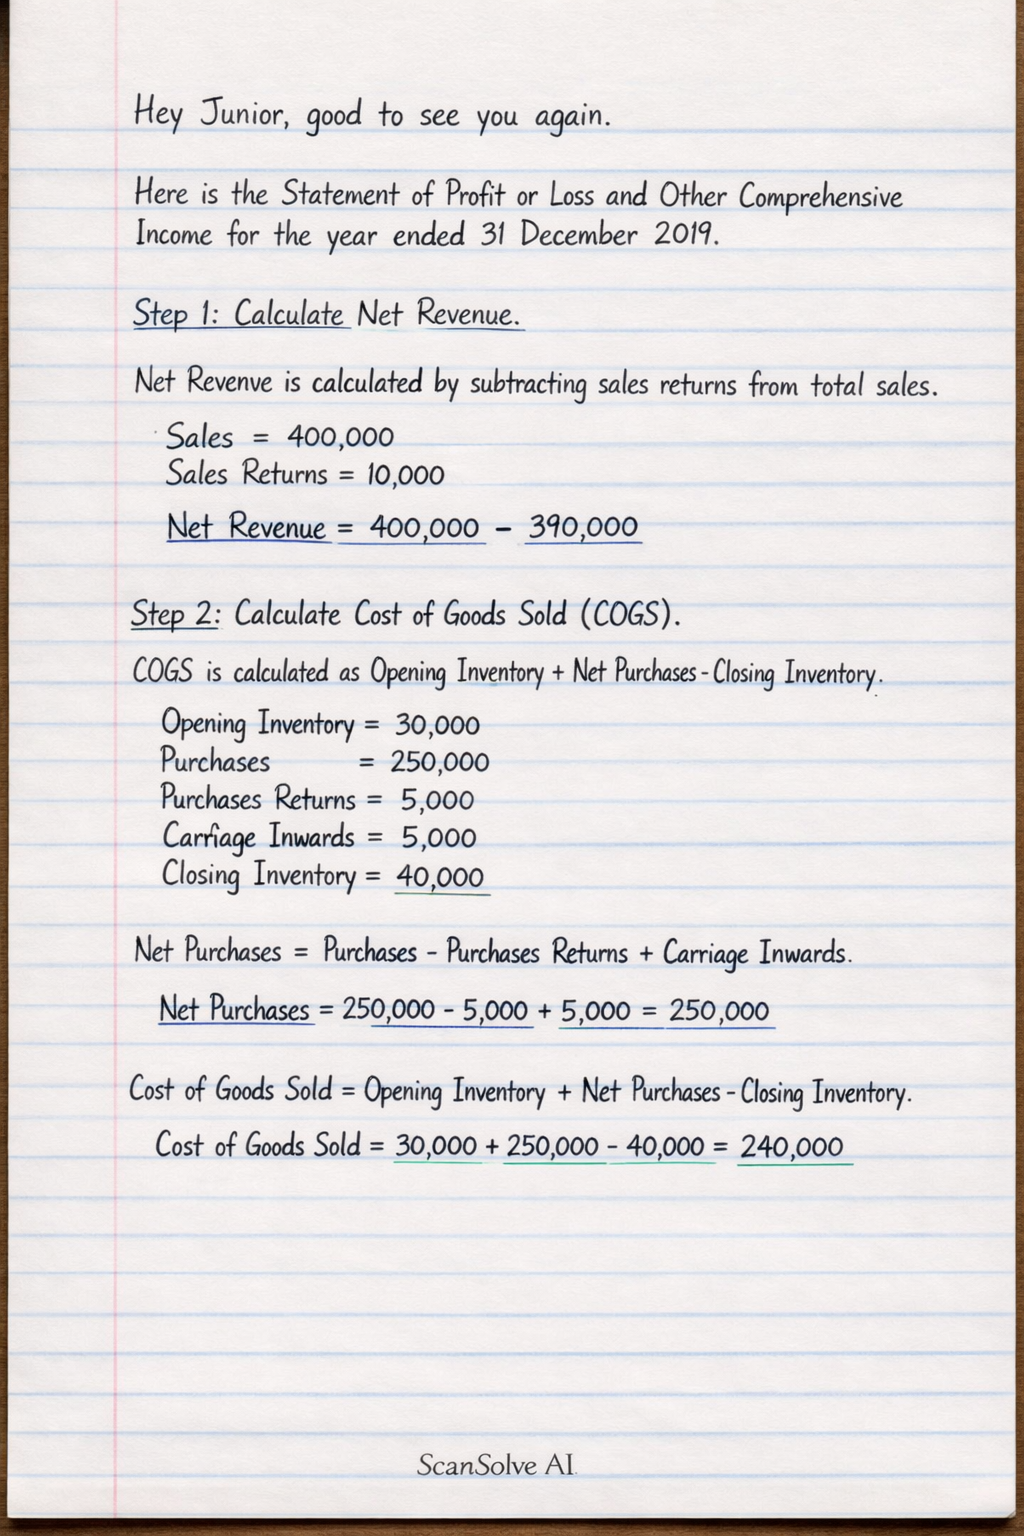 Hey Junior, good to see you again.
Here is the Statement of Profit or Loss and Other Comprehensive
Income for the year ended 31 December 2019.
Step 1: Calculate Net Revenue.
Net Revenve is calculated by subtracting sales returns from total sales.
Sales = 400,000
Sales Returns = 10,000
Net Revenue = 400,000 - 390,000
Step 2: Calculate Cost of Goods Sold (COGS).
COGS is calculated as Opening Inventory + Net Purchases - Closing Inventory.
Opening Inventory = 30,000
Purchases = 250,000
Purchases Returns = 5,000
Carriage Inwards = 5,000
Closing Inventory = 40,000
Net Purchases = Purchases - Purchases Returns + Carriage Inwards.
Net Purchases = 250,000 - 5,000 + 5,000 = 250,000
Cost of Goods Sold = Opening Inventory + Net Purchases - Closing Inventory.
Cost of Goods Sold = 30,000 + 250,000 - 40,000 = 240,000
ScanSolve AI